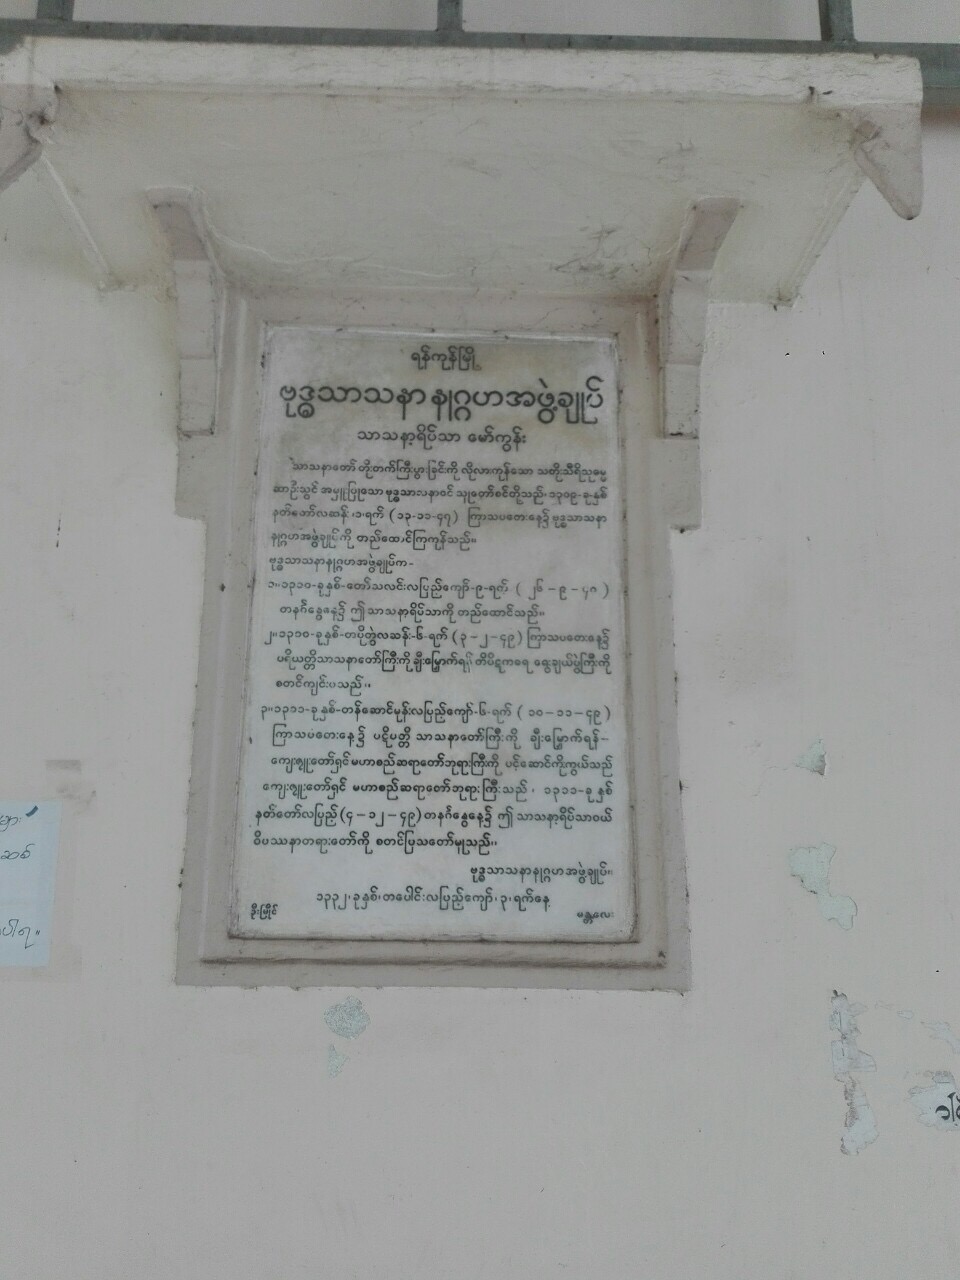 ရန်ကုန်မြို့
ဗုဒ္ဓသာသနာနုဂ္ဂဟအဖွဲ့ချုပ်
သာသနာ့ရိပ်သာ မော်ကွန်း
သာသနာတော် တိုးတက်ကြီးပွားခြင်းကို လိုလားကုန်သော သတိုးသီရိသုဓမ္မ
ဆာဦးသွင် အမှူးပြုသော ဗုဒ္ဓသာသနာဝင် သူတော်စင်တို့သည်-၁၃၀၉-ခုနှစ်
နတ်တော်လဆန်း၊၁၊ရက် (၁၃-၁၁-၄၇) ကြာသပတေးနေ့၌ ဗုဒ္ဓသာသနာ
နုဂ္ဂဟအဖွဲ့ချုပ်ကို တည်ထောင်ကြကုန်သည်။
ဗုဒ္ဓသာသနာနုဂ္ဂဟအဖွဲ့ချုပ်က-
၁။၁၃၁၀-ခုနှစ်-တော်သလင်းလပြည့်ကျော်-၉-ရက် ( ၂၆-၉-၄၈ )
တနင်္ဂနွေနေ့၌ ဤသာသနာ့ရိပ်သာကို တည်ထောင်သည်။
၂။၁၃၁၀-ခုနှစ်-တပို့တွဲလဆန်း-၆-ရက် (၃-၂-၄၉) ကြာသပတေးနေ့၌
ပရိယတ္တိသာသနာတော်ကြီးကို ချီးမြှောက်ရန် တိပိဋကဓရ ရွေးချယ်ပွဲကြီးကို
စတင်ကျင်းပသည်။
၃။၁၃၁၁-ခုနှစ်-တန်ဆောင်မုန်းလပြည့်ကျော်-၆-ရက် ( ၁၀-၁၁-၄၉ )
ကြာသပတေးနေ့၌ ပဋိပတ္တိ သာသနာတော်ကြီးကို ချီးမြှောက်ရန်-
ကျေးဇူးတော်ရှင်မဟာစည်ဆရာတော်ဘုရားကြီးကို ပင့်ဆောင်ကိုးကွယ်သည်
ကျေးဇူးတော်ရှင် မဟာစည်ဆရာတော်ဘုရားကြီးသည်၊ ၁၃၁၁-ခုနှစ်
နတ်တော်လပြည့်(၄-၁၂-၄၉)တနင်္ဂနွေနေ့၌ ဤ သာသနာ့ရိပ်သာဝယ်
ဝိပဿနာတရားတော်ကို စတင်ပြသတော်မူသည်။
ဗုဒ္ဓသာသနာနုဂ္ဂဟအဖွဲ့ချုပ်။
၁၃၃၂၊ခုနှစ်၊တပေါင်းလပြည့်ကျော်၊၃၊ရက်နေ့
ဦးမြိုင်
မန္တလေး